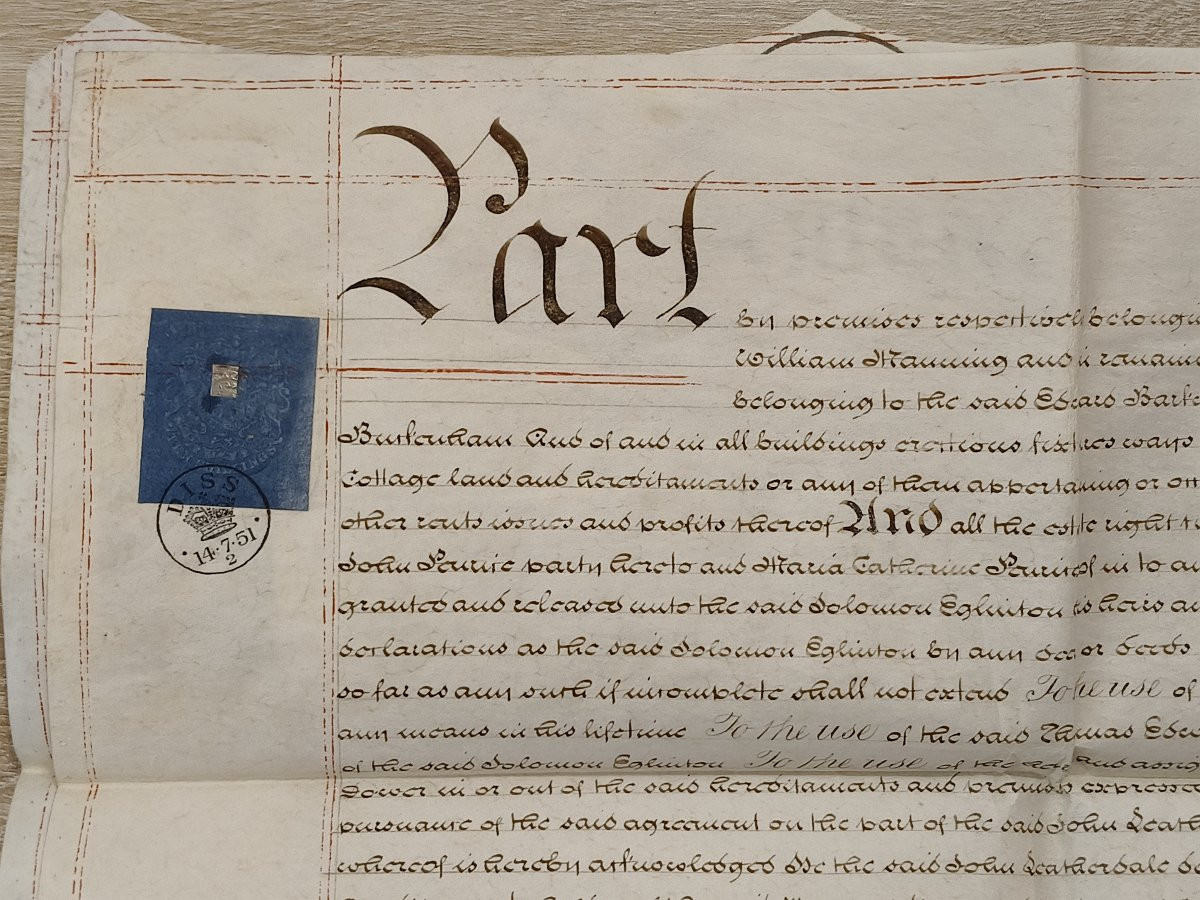 Part
by premises respectively
William Manning and
belonging to the said
Burkenham And of and in all buildings erections ways
Cottage land and hereditaments or any of them or
other rents issues and profits thereof And all the right
John party hereto and Maria Catherine in to
granted and released unto the said Solomon Eglinton heirs
declarations as the said Solomon Eglinton by any or deeds
so far as any such if incomplete shall not extend To use of
any means in his lifetime To the use of the said Thomas
of the said Solomon Eglinton To the use of the
Dower in or out of the said hereditaments and premises
pursuance of the said agreement on the part of the said John
whereof is hereby acknowledged He the said John Leatherdale
DISS
14.7.51
2